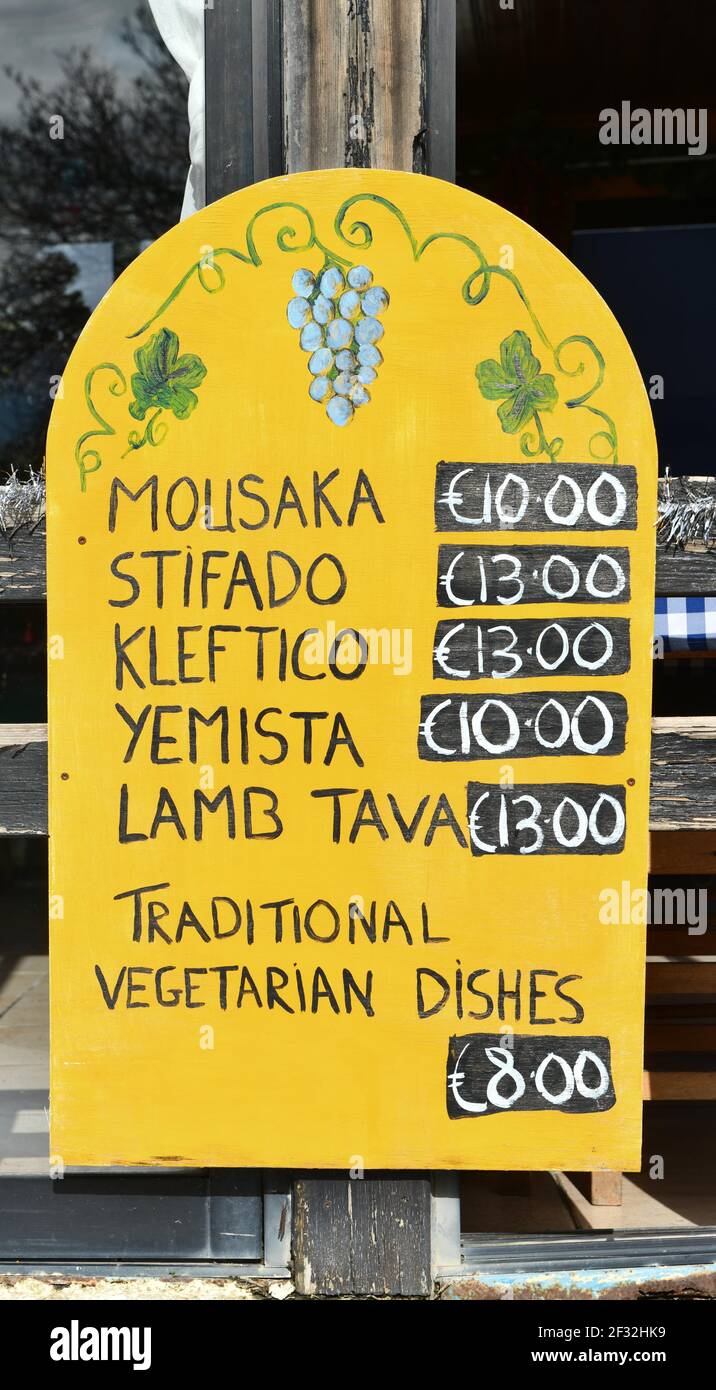 MOUSAKA €10.00
STIFADO €13.00
KLEFTICO €13.00
YEMISTA €10.00
LAMB TAVA €13.00
TRADITIONAL
VEGETARIAN DISHES
€8.00
alamy
Image ID: 2F32HK9
www.alamy.com